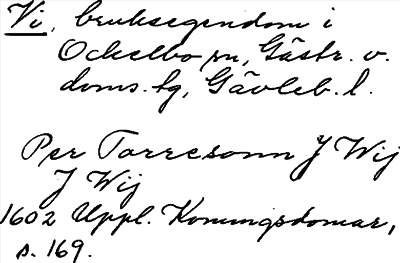 Vi, bruksegendom i
Ockelbo sn, Gästr. v.
doms.tg, Gävleb. l.
Per Torresonn J Wij
J Wij
1602 Uppl. Konungsdomar,
s. 169.